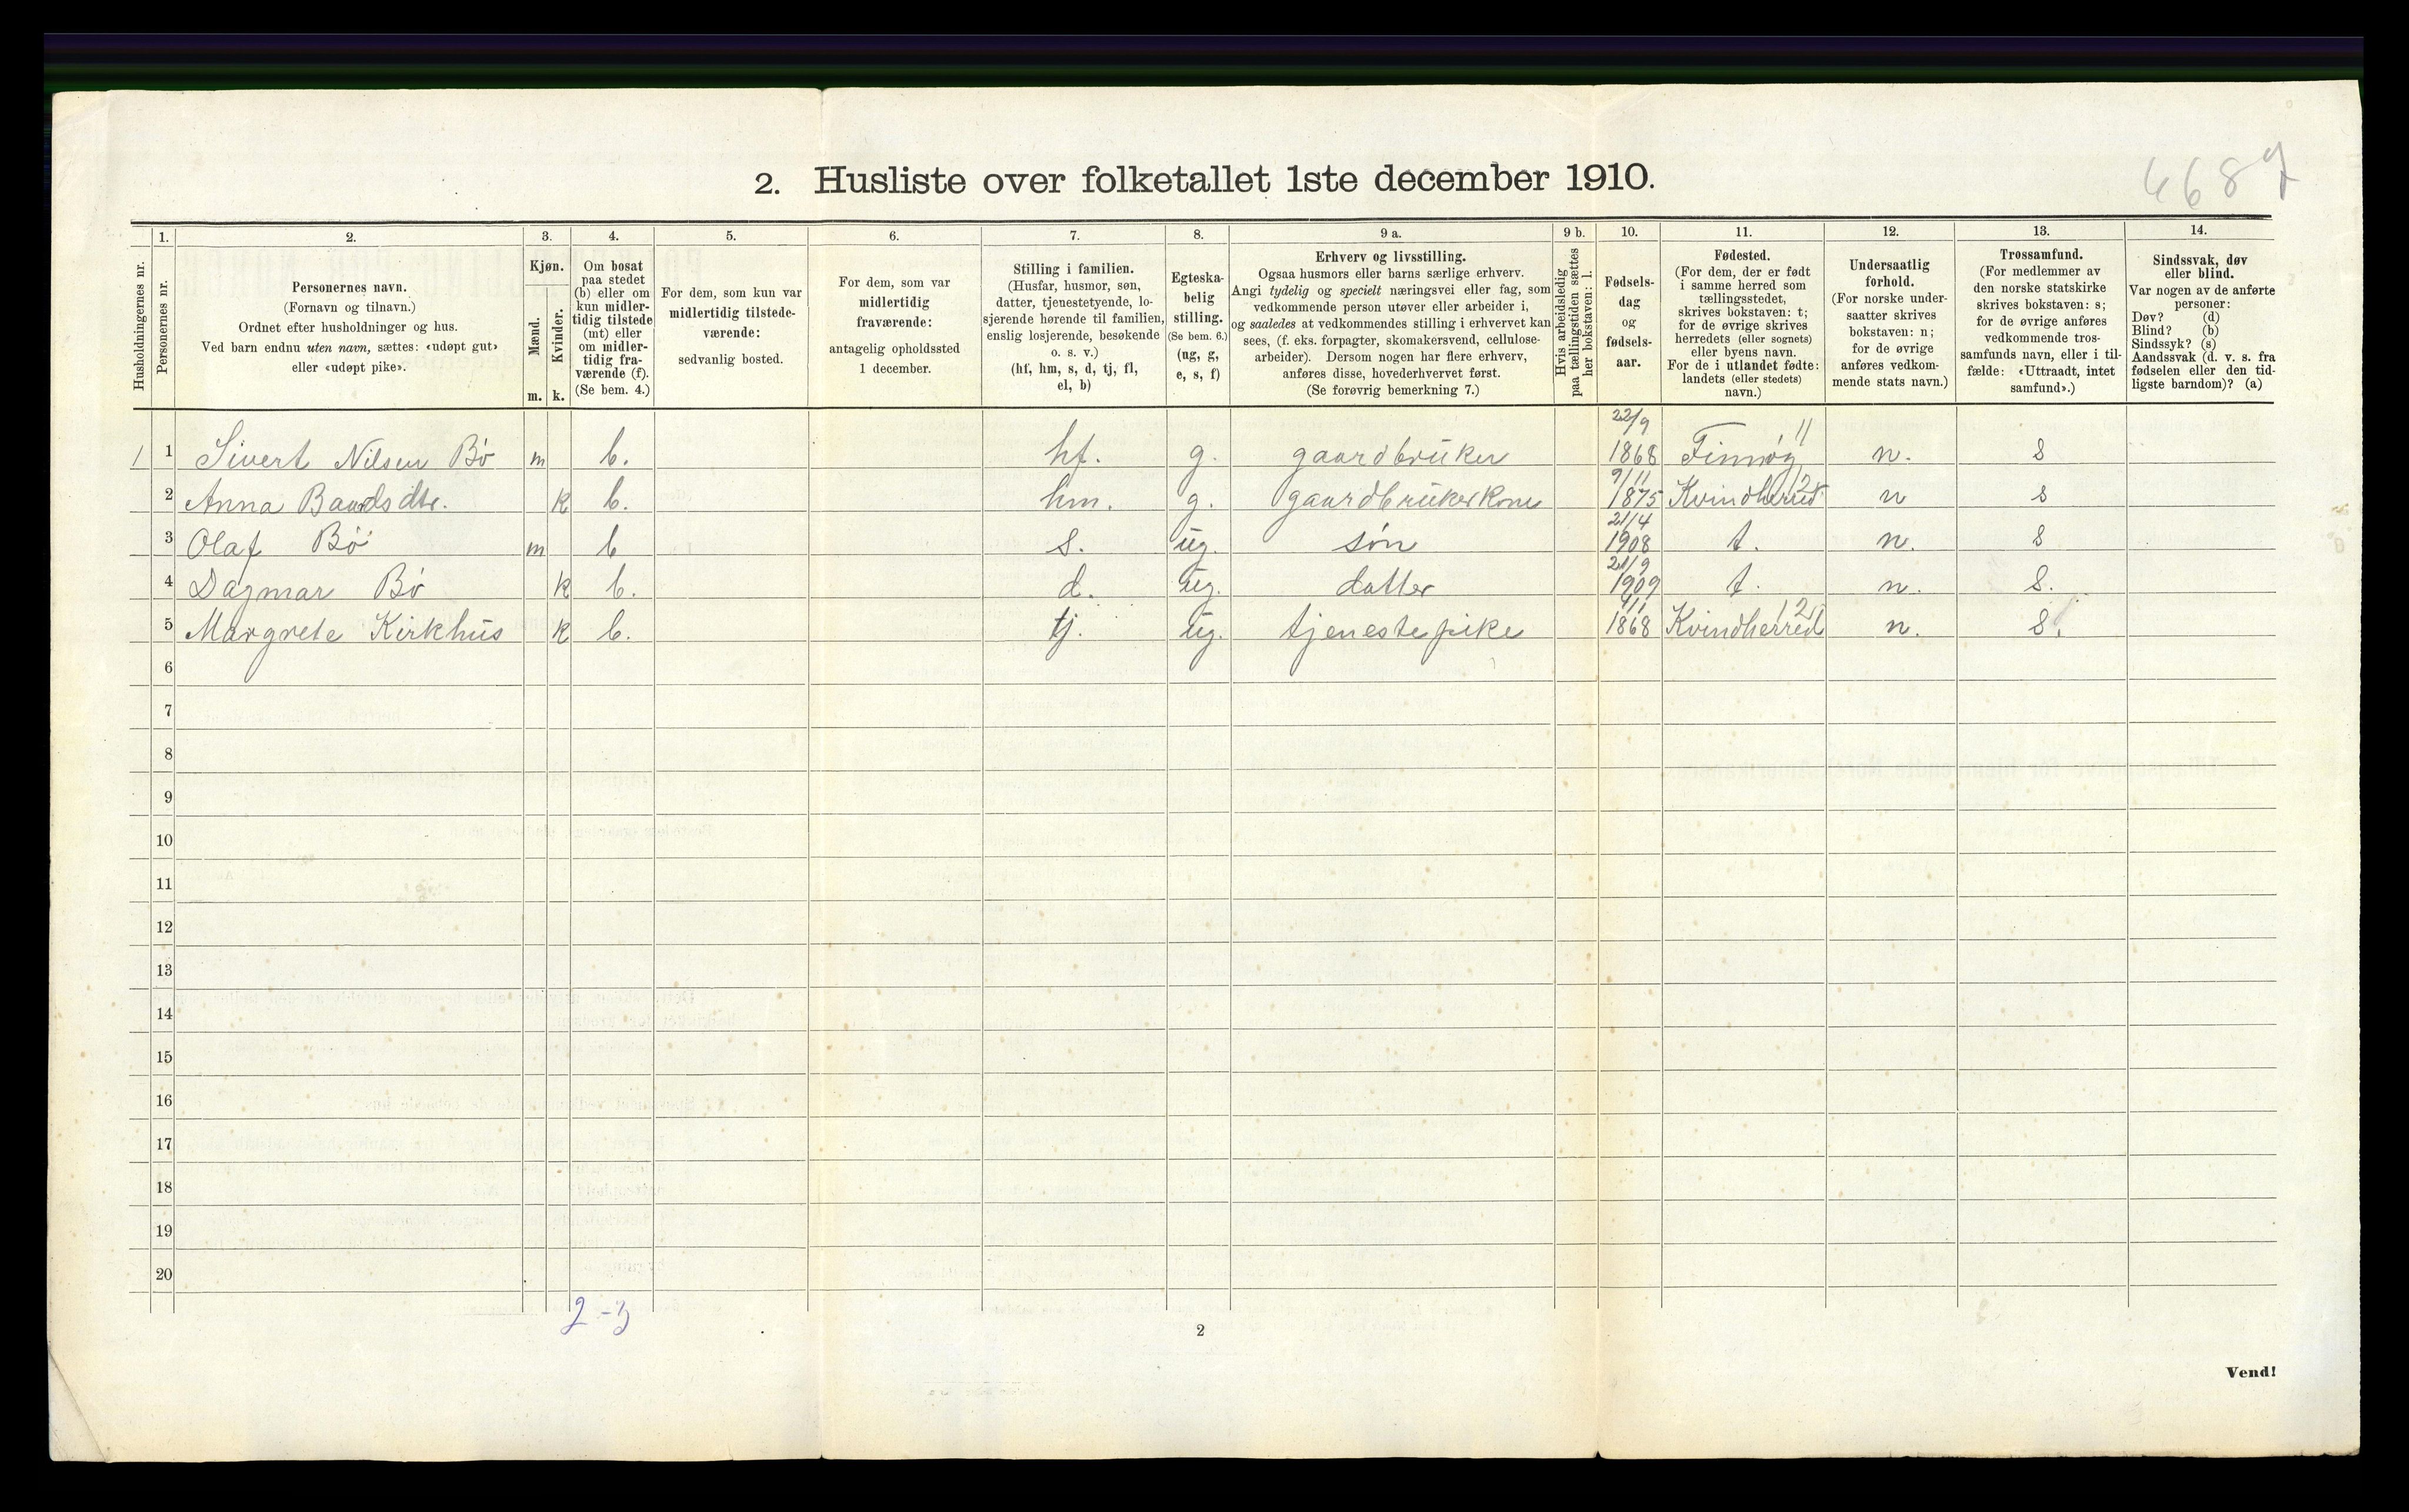 4689
2. Husliste over folketallet 1ste december 1910.
Husholdningernes nr.
1.
Personernes nr.
2.
Personernes navn.
(Fornavn og tilnavn.)
Ordnet efter husholdninger og hus.
Ved barn endnu uten navn, sættes: «udøpt gut»
eller «udøpt pike».
3.
Kjøn.
Mænd.
Kvinder.
m. k.
4.
Om bosat
paa stedet
(b) eller om
kun midler-
tidig tilstede
(mt) eller
om midler-
tidig fra-
værende (f).
(Se bem. 4.)
5.
For dem, som kun var
midlertidig tilstede-
værende:
sedvanlig bosted.
6.
For dem, som var
midlertidig
fraværende:
antagelig opholdssted
1 december.
7.
Stilling i familien.
(Husfar, husmor, søn,
datter, tjenestetyende, lo-
sjerende hørende til familien,
enslig losjerende, besøkende
o. s. v.)
(hf, hm, s, d, tj, fl,
el, b)
8.
Egteska-
belig
stilling.
(Se bem. 6.)
(ug, g,
e, s, f)
9 a.
Erhverv og livsstilling.
Ogsaa husmors eller barns særlige erhverv.
Angi tydelig og specielt næringsvei eller fag, som
vedkommende person utøver eller arbeider i,
og saaledes at vedkommendes stilling i erhvervet kan
sees, (f. eks. forpagter, skomakersvend, cellulose-
arbeider). Dersom nogen har flere erhverv,
anføres disse, hovederhvervet først.
(Se forøvrig bemerkning 7.)
9 b.
Hvis arbeidsledig
paa tællingstiden sættes
her bokstaven: l.
10.
Fødsels-
dag
og
fødsels-
aar.
11.
Fødested.
(For dem, der er født
i samme herred som
tællingsstedet,
skrives bokstaven: t;
for de øvrige skrives
herredets (eller sognets)
eller byens navn.
For de i utlandet fødte:
landets (eller stedets)
navn.)
12.
Undersaatlig
forhold.
(For norske under-
saatter skrives
bokstaven: n;
for de øvrige
anføres vedkom-
mende stats navn.)
13.
Trossamfund.
(For medlemmer av
den norske statskirke
skrives bokstaven: s;
for de øvrige anføres
vedkommende tros-
samfunds navn, eller i til-
fælde: «Uttraadt, intet
samfund».)
14.
Sindssvak, døv
eller blind.
Var nogen av de anførte
personer:
Døv? (d)
Blind? (b)
Sindssyk? (s)
Aandssvak (d. v. s. fra
fødselen eller den tid-
ligste barndom)? (a)
1 1 Sivert Nilsen Bø m b. hf. g. gaardbruker 22/9 1868 Finnøy 11 n. s
2 Anna Baardsdtr. k b. hm. g. gaardbrukerkone 9/11 1875 Kvindherred 12 n s
3 Olaf Bø m b s. ug. søn 21/4 1908 t. n. s
4 Dagmar Bø k b. d. ug. datter 21/9 1909 t. n. s.
5 Margrete Kirkhus k b. tj. ug. tjenestepike 4/1 1868 Kvindherred 12 n. s.
6
7
8
9
10
11
12
13
14
15
16
17
18
19
20
2-3
2
Vend!